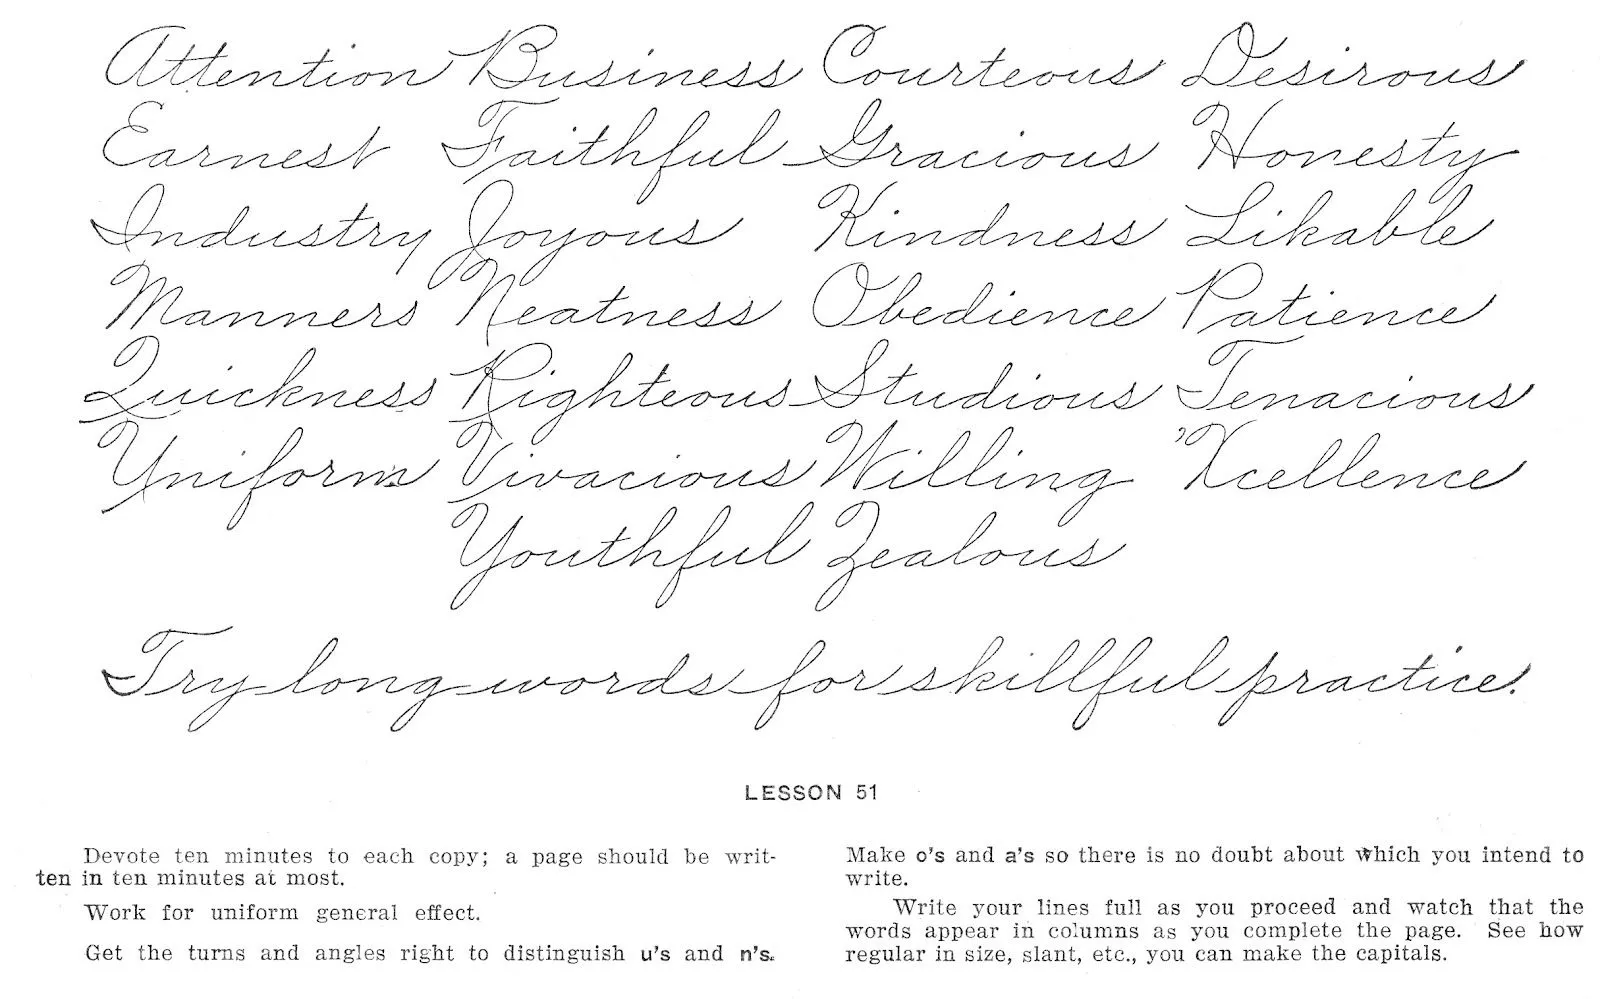 Attention Business Courteous Desirous
Earnest Faithful Gracious Honesty
Industry Joyous Kindness Likable
Manners Neatness Obedience Patience
Quickness Righteous Studious Tenacious
Uniform Vivacious Willing 'Xcellence
Youthful Zealous
Try long words for skillful practice.
LESSON 51
Devote ten minutes to each copy; a page should be writ-
ten in ten minutes at most.
Work for uniform general effect.
Get the turns and angles right to distinguish u's and n's.
Make o's and a's so there is no doubt about which you intend to
write.
Write your lines full as you proceed and watch that the
words appear in columns as you complete the page. See how
regular in size, slant, etc., you can make the capitals.